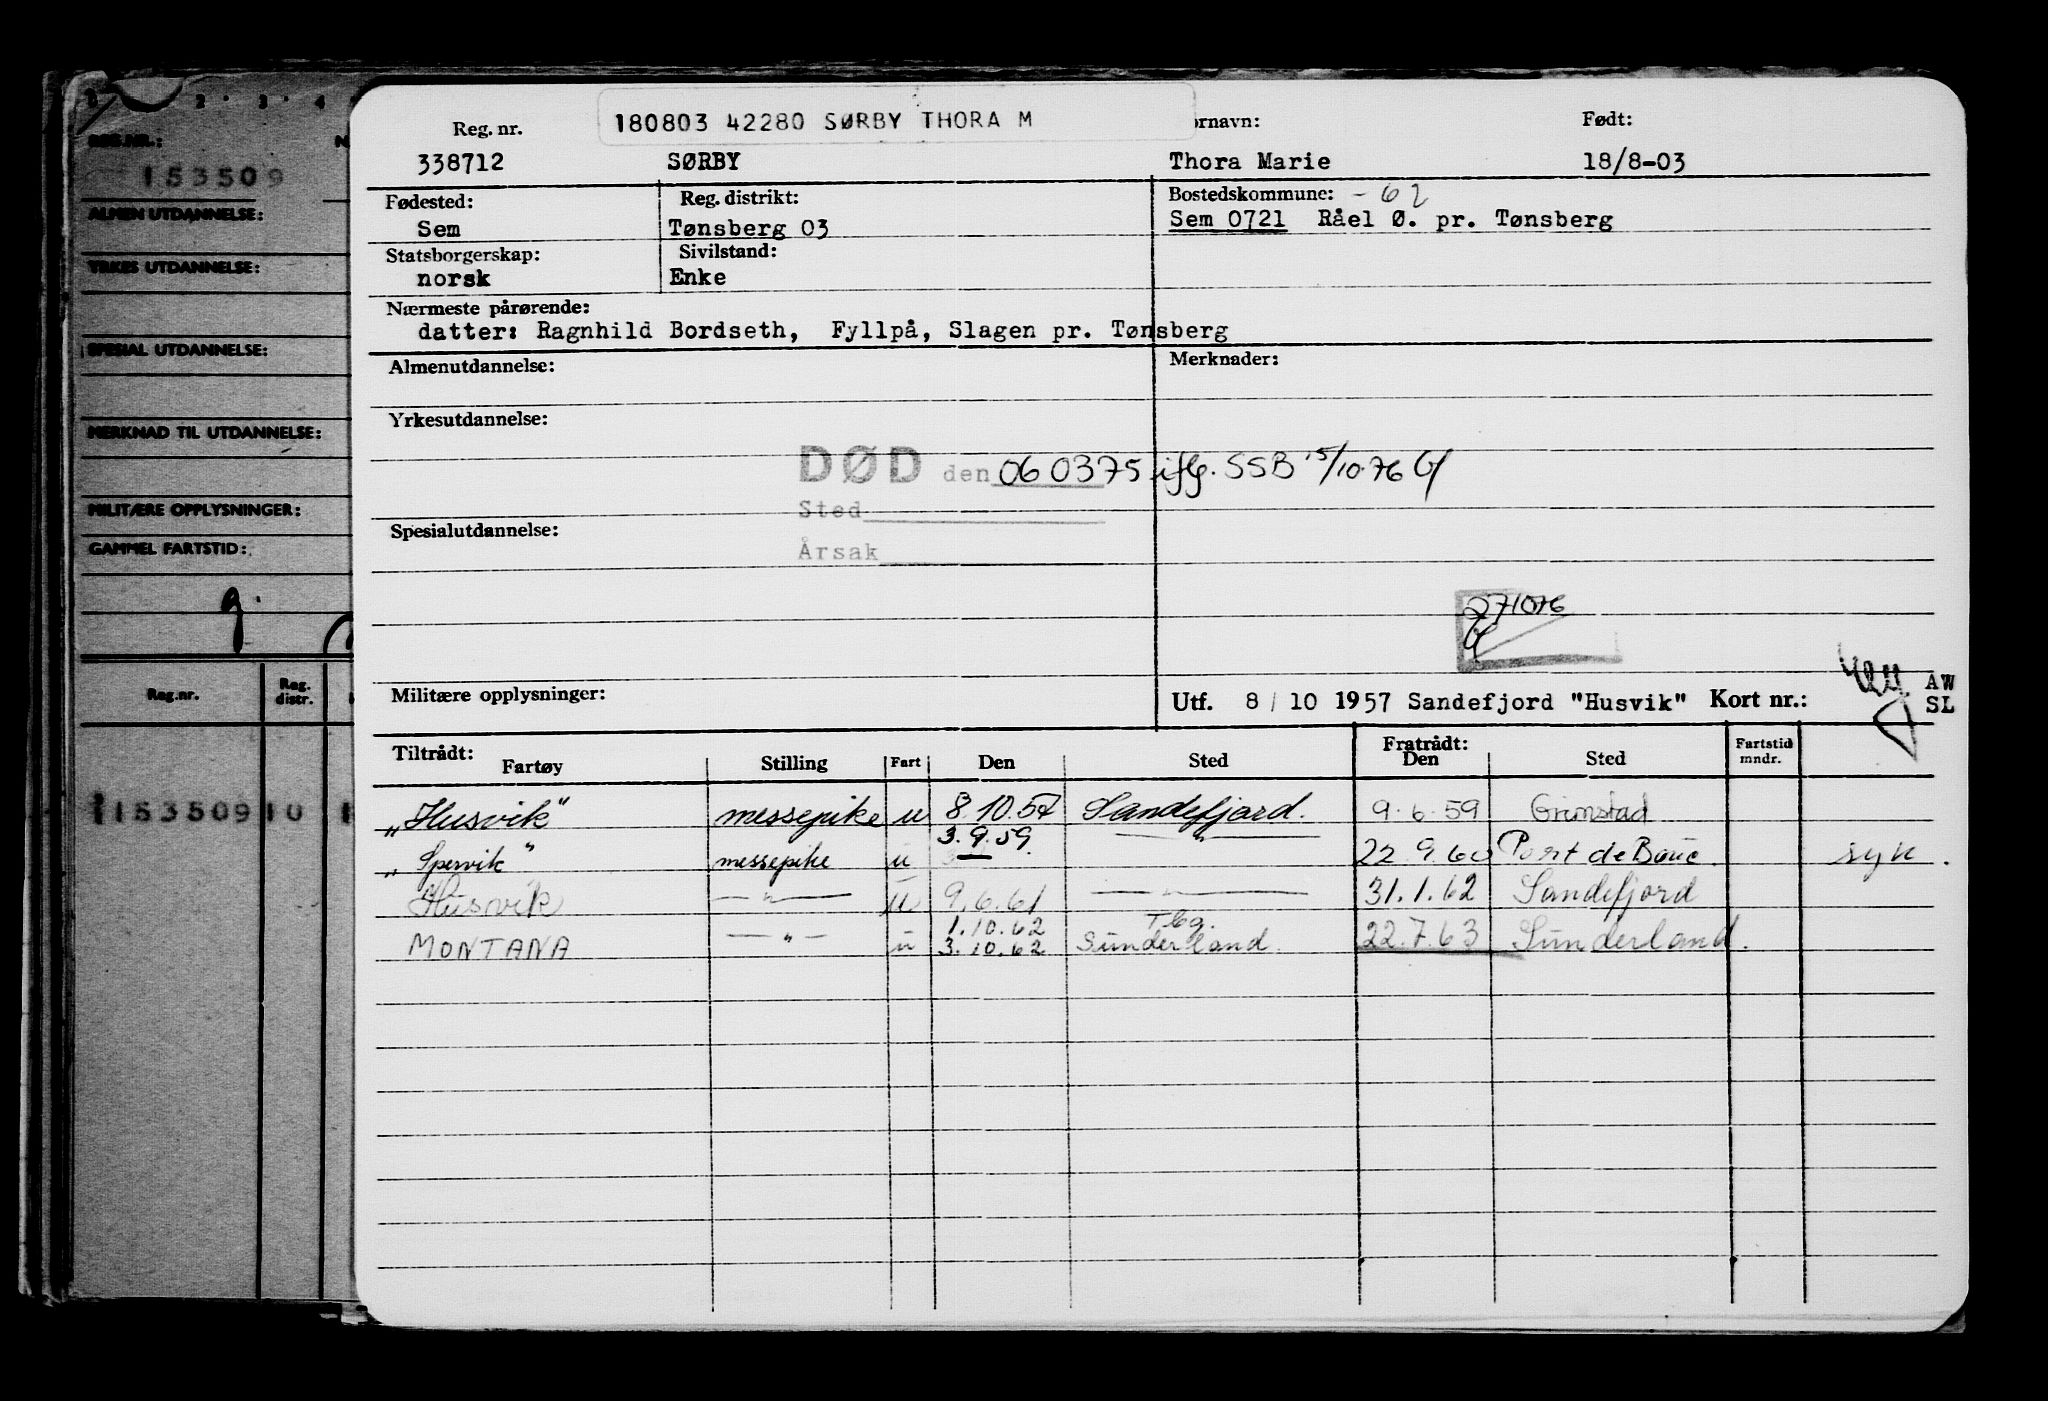 1 2 3 4
REG.NR.: N
153509
ALMEN UTDANNELSE:
YRKES UTDANNELSE:
SPESIAL UTDANNELSE:
MERKNAD TIL UTDANNELSE:
MILITÆRE OPPLYSNINGER:
GAMMEL FARTSTID:
g.
Reg.nr. Reg. distr.
153509 10 1
180803 42280 SØRBY THORA M
Reg. nr. ornavn: Født:
338712 SØRBY Thora Marie 18/8-03
Fødested: Reg. distrikt: Bostedskommune: - 62
Sem Tønsberg 03 Sem 0721 Råel Ø. pr. Tønsberg
Statsborgerskap: Sivilstand:
norsk Enke
Nærmeste pårørende:
datter: Ragnhild Bordseth, Fyllpå, Slagen pr. Tønsberg
Almenutdannelse: Merknader:
Yrkesutdannelse:
DØD den 060375 iflg. SSB 15/10-76
Sted
Spesialutdannelse:
Årsak
271076
Militære opplysninger: Utf. 8 / 10 1957 Sandefjord "Husvik" Kort nr.: AW
SL
Tiltrådt: Fratrådt:
Fartøy Stilling Fart Den Sted Den Sted Fartstid mndr.
„Husvik" messepike u 8.10.57 Sandefjord. 9.6.59 Grimstad
„Spervik" messepike u 3.9.59. — " — 22.9.60 Port de Bouc syk.
Husvik — " — u 9.6.61 — " — 31.1.62 Sandefjord
1.10.62 Tbg.
MONTANA — " — u 3.10.62 Sunderland. 22.7.63 Sunderland.